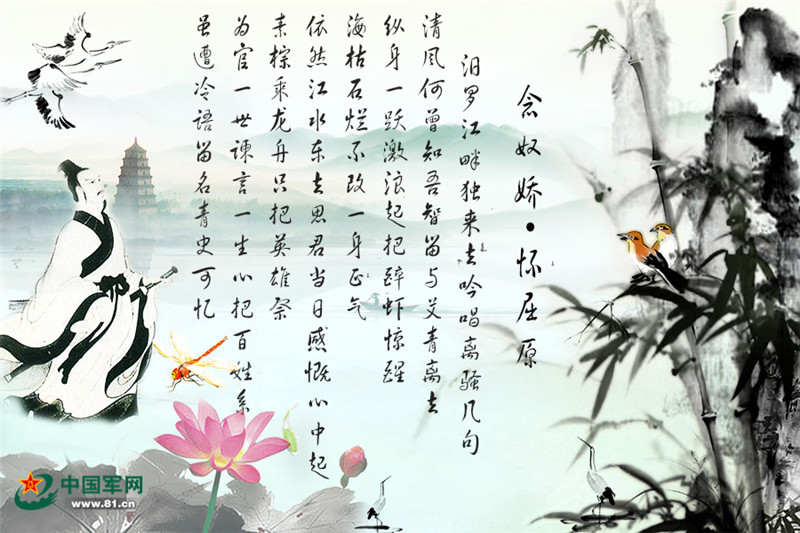 念奴娇·怀屈原
汨罗江畔独来去吟唱离骚几句
清风何曾知吾智留与艾青离去
纵身一跃激浪起把醉虾惊醒
海枯石烂不改一身正气
依然江水东去思君当日感慨心中起
束棕乘龙舟只把英雄祭
为官一世谏言一生心把百姓系
虽遭冷语留名青史可忆
中国军网
www.81.cn